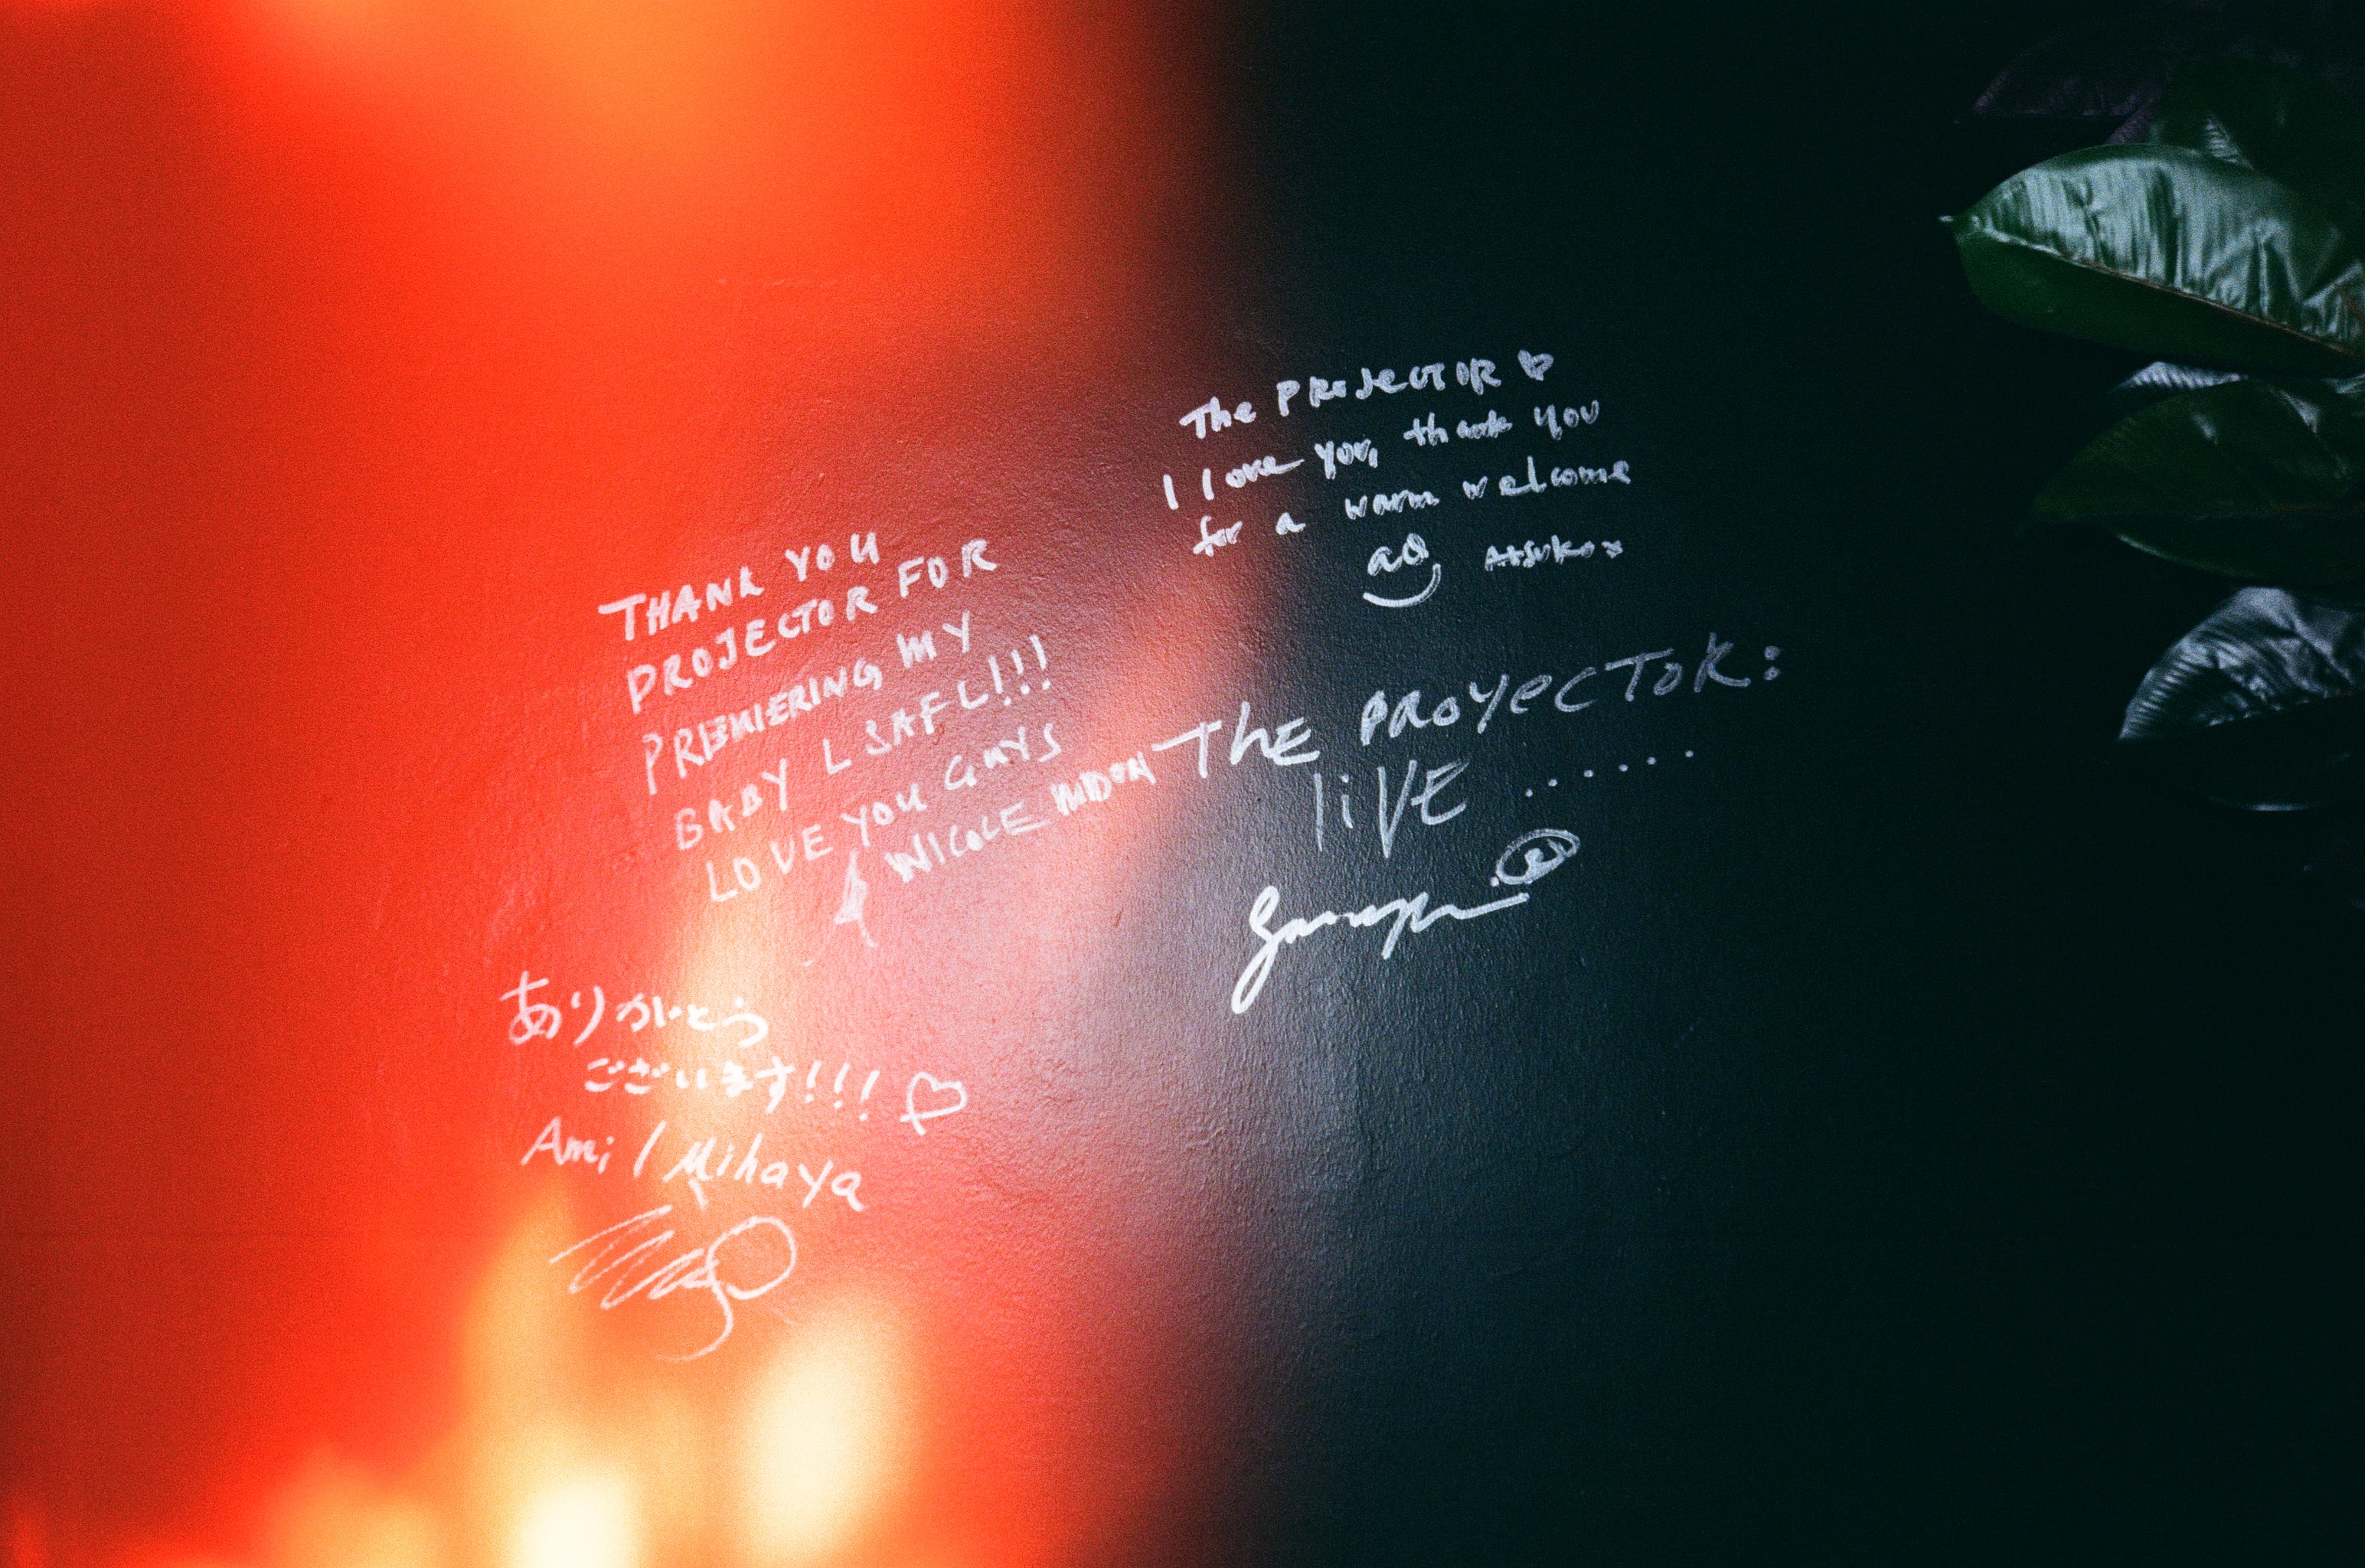 The PROJECTOR
I love you, thank you
for a warm welcome
Atsuko
THANK YOU
PROJECTOR FOR
PREMIERING MY
BABY LSAFL!!!
LOVE YOU GUYS
NICOLE MIDORI
THE PROYECTOR:
liVE .......
ありがとう
ございます!!!
Ami / Mihaya